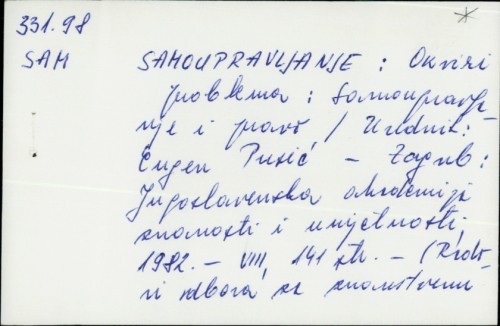 331.98
SAM
SAMOUPRAVLJANJE : Okviri
problema : Samoupravlja-
nje i pravo / Urednik:
Eugen Pusić - Zagreb:
Jugoslavenska akademija
znanosti i umjetnosti,
1982. - VIII, 141 str. - (Rado-
vi odbora za znanstvenu